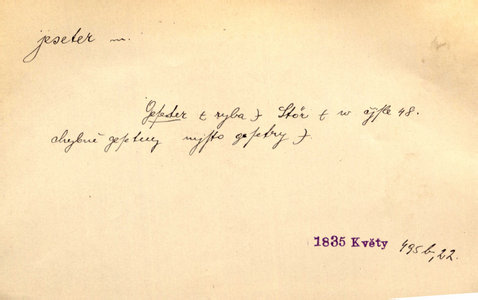 jeseter m.
Geseter ( ryba ) Stör ( w čjsle 48.
chybně gesetrny mjsto gesetry )
1835 Květy 495 b, 22.